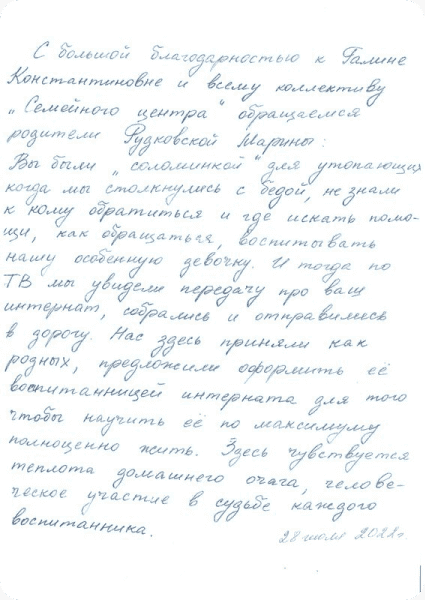 С большой благодарностью к Галине
Константиновне и всему коллективу
„Семейного центра“ обращаемся
родители Рудковской Марины:
Вы были „соломинкой“ для утопающих
когда мы столкнулись с бедой, не знали
к кому обратиться и где искать помо-
щи, как обращаться, воспитывать
нашу особенную девочку. И тогда по
ТВ мы увидели передачу про ваш
интернат, собрались и отправились
в дорогу. Нас здесь приняли как
родных, предложили оформить её
воспитанницей интерната для того
чтобы научить её по максимуму
полноценно жить. Здесь чувствуется
теплота домашнего очага, челове-
ческое участие в судьбе каждого
воспитанника.
28 июля 2022г.